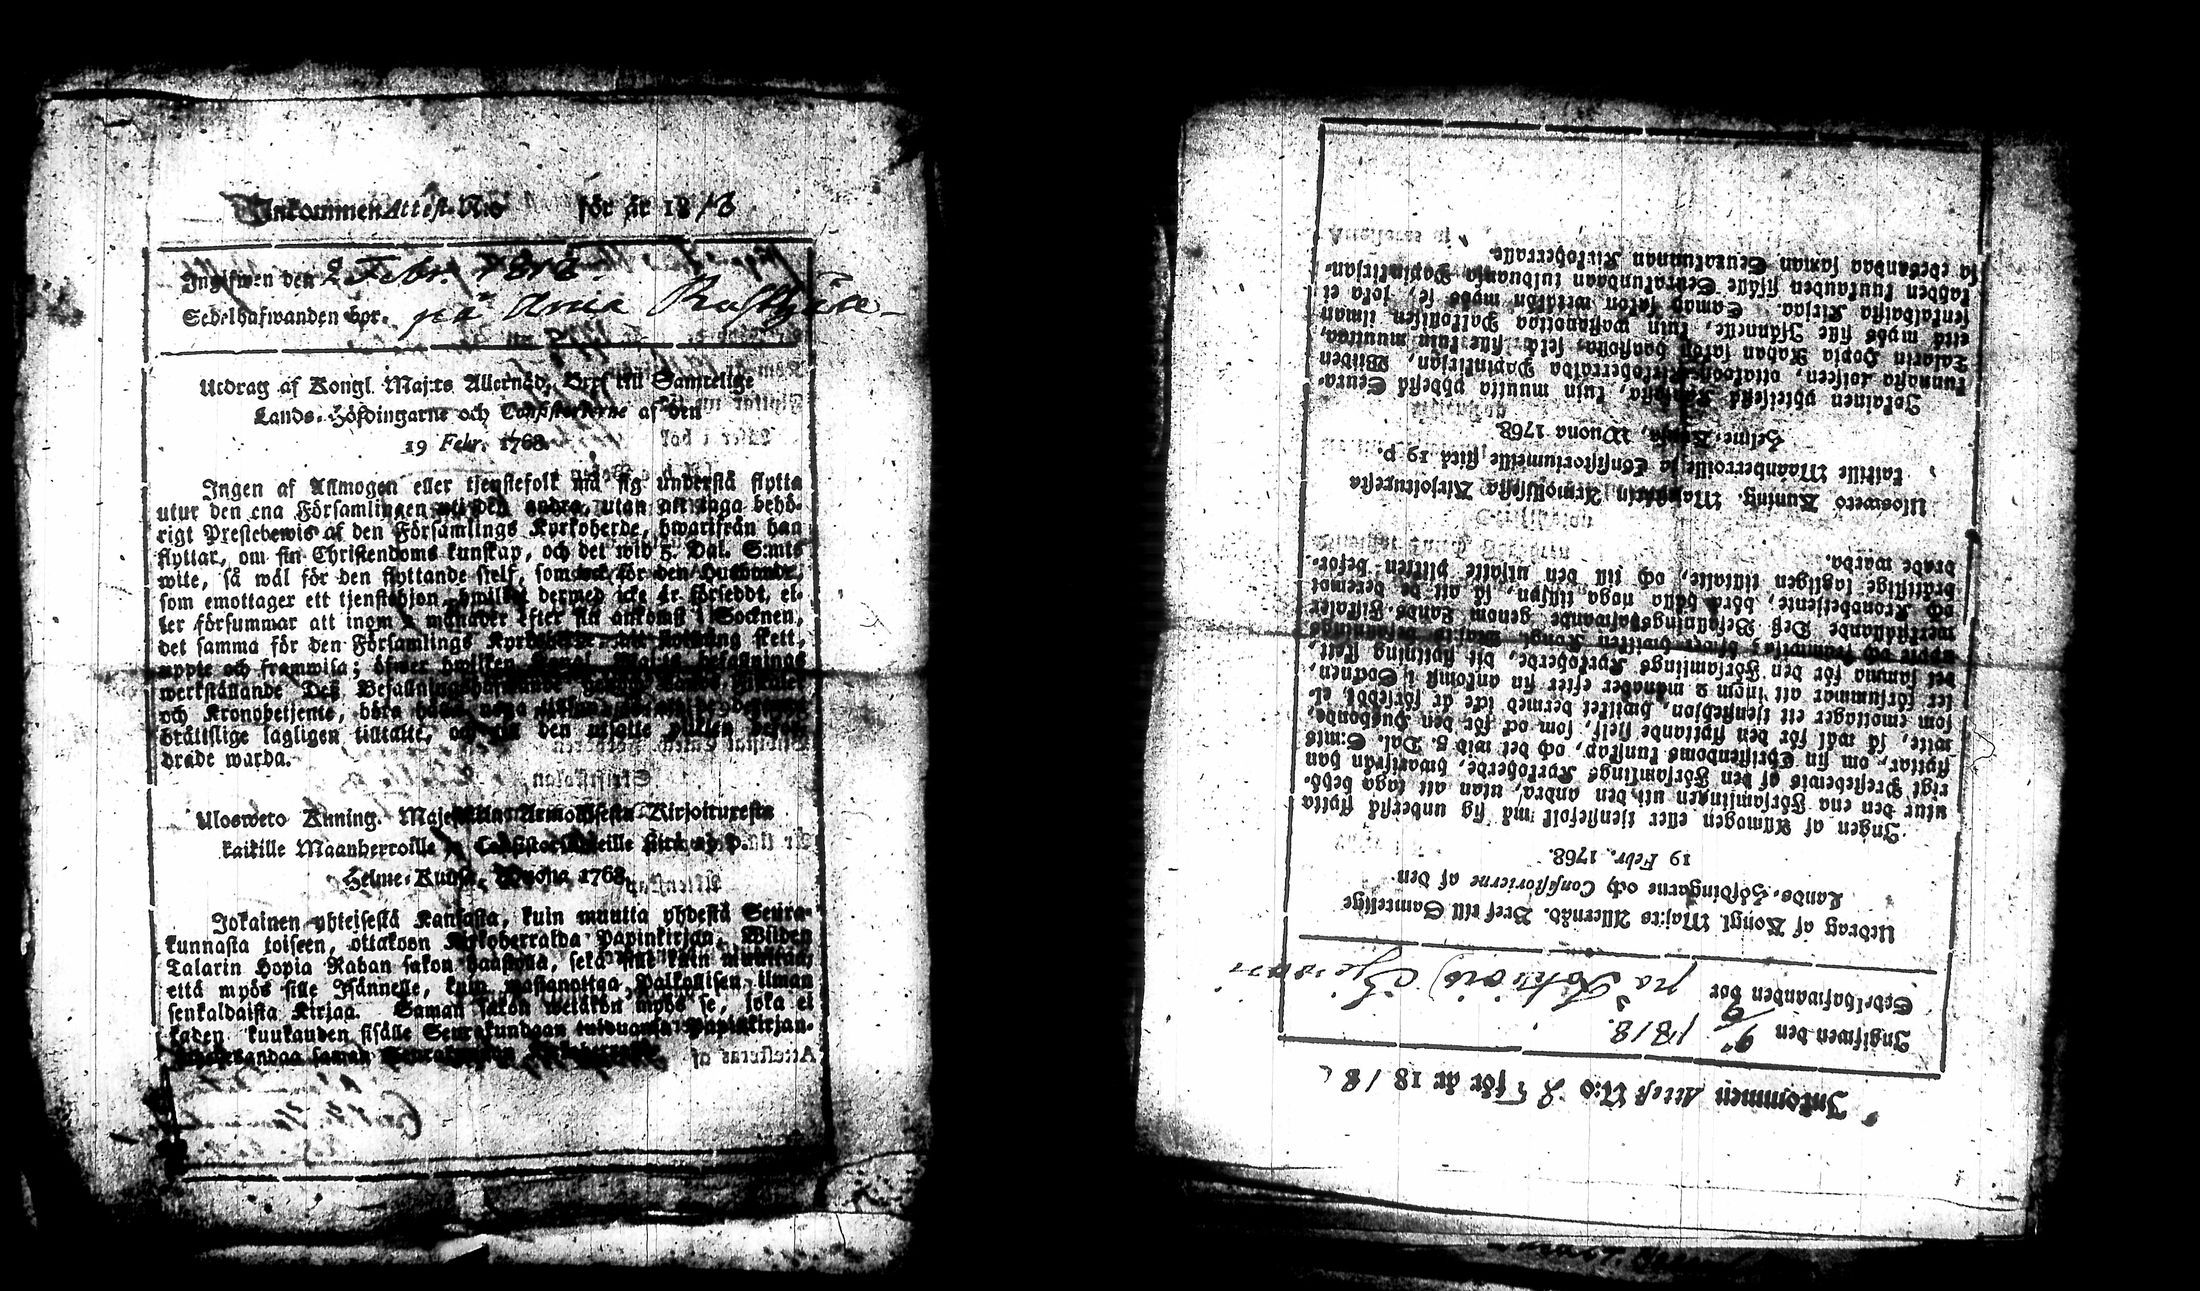 Inkommen Attest. N:o för är 1818
Ingifwen den 2 Febr. 1818
Sedelhafwanden bor. på
Utdrag af Kongl. Maj:ts Allernåd. Bref till Samtelige
Lands-Höfdingarne och Consistorierne af den
19 Febr. 1768.
Ingen af Allmogen eller tjenstefolk må sig understå flytta
utur den ena Församlingen uti den andra, utan att taga behö-
rigt Prestebewis af den Församlings Kyrkoherde, hwarifrån han
flyttar, om sin Christendoms kunskap, och det wid 5. Dal. S:mts
wite, så wäl för den flyttande sielf, som ock för den Husbonde,
som emottager ett tjenstehjon, hwilket dermed icke är försedt, el-
ler försummar att inom 2 månader efter sin ankomst i Socknen,
det samma för den Församlings Kyrkoherde, dit flyttning skett,
uppte och framwisa; öfwer hwilken Kongl. Maj:ts befallnings
werkställande Deß Befallningshafwande genom Lands-Fiskaler
och Kronobetjente, böra hålla noga
brättslige lagligen tilltalte, och till den utsatte plikten beför-
drade warda.
Ulosweto Kuning. Majestetin Armollisesta Kirjoituxesta
kaikille Maanherroille ja Consistoriumeille sitä 19 p.
Helme-Kuusa, Wuona 1768.
Jokainen yhteisestä Kansasta, kuin muutta yhdestä Seura-
kunnasta toiseen, ottakoon Kirkoherralda Papinkirjan, Wiiden
Talarin Hopia Rahan sakon haastolla, sekä sille kuin muuttaa,
että myös sille Isännelle, kuin wastanottaa Palkollisen ilman
senkaldaista Kirjaa. Saman sakon wetäkön myös se, joka ei
kahden kuukauden sisälle Seurakundaan tulduansa Papinkirjan-
sa edesandaa saman Seurakunnan Kirkoherralle.
Inkommen Attest N:o 24 för år 1818
Ingifwen den 9/9 1818.
Sedelhafwanden bor på
Utdrag af Kongl. Maj:ts Allernåd. Bref till Samtelige
Lands-Höfdingarne och Consistorierne af den
19 Febr. 1768.
Ingen af Allmogen eller tjenstefolk må sig understå flytta
utur den ena Församlingen uti den andra, utan att taga behö-
rigt Prestebewis af den Församlings Kyrkoherde, hwarifrån han
flyttar, om sin Christendoms kunskap, och det wid 5. Dal. S:mts
wite, så wäl för den flyttande sielf, som ock för den Husbonde,
som emottager ett tjenstehjon, hwilket dermed icke är försedt, el-
ler försummar att inom 2 månader efter sin ankomst i Socknen,
det samma för den Församlings Kyrkoherde, dit flyttning skett,
uppte och framwisa; öfwer hwilken Kongl. Maj:ts befallnings
werkställande Deß Befallningshafwande genom Lands-Fiskaler
och Kronobetjente, böra hålla noga tillsyn, så att de deremot
brättslige lagligen tilltalte, och till den utsatte plikten beför-
drade warda.
Ulosweto Kuning. Majestetin Armollisesta Kirjoituxesta
kaikille Maanherroille ja Consistoriumeille sitä 19 p.
Helme-Kuusa, Wuona 1768.
Jokainen yhteisestä Kansasta, kuin muutta yhdestä Seura-
kunnasta toiseen, ottakoon Kirkoherralda Papinkirjan, Wiiden
Talarin Hopia Rahan sakon haastolla, sekä sille kuin muuttaa,
että myös sille Isännelle, kuin wastanottaa Palkollisen ilman
senkaldaista Kirjaa. Saman sakon wetäkön myös se, joka ei
kahden kuukauden sisälle Seurakundaan tulduansa Papinkirjan-
sa edesandaa saman Seurakunnan Kirkoherralle.